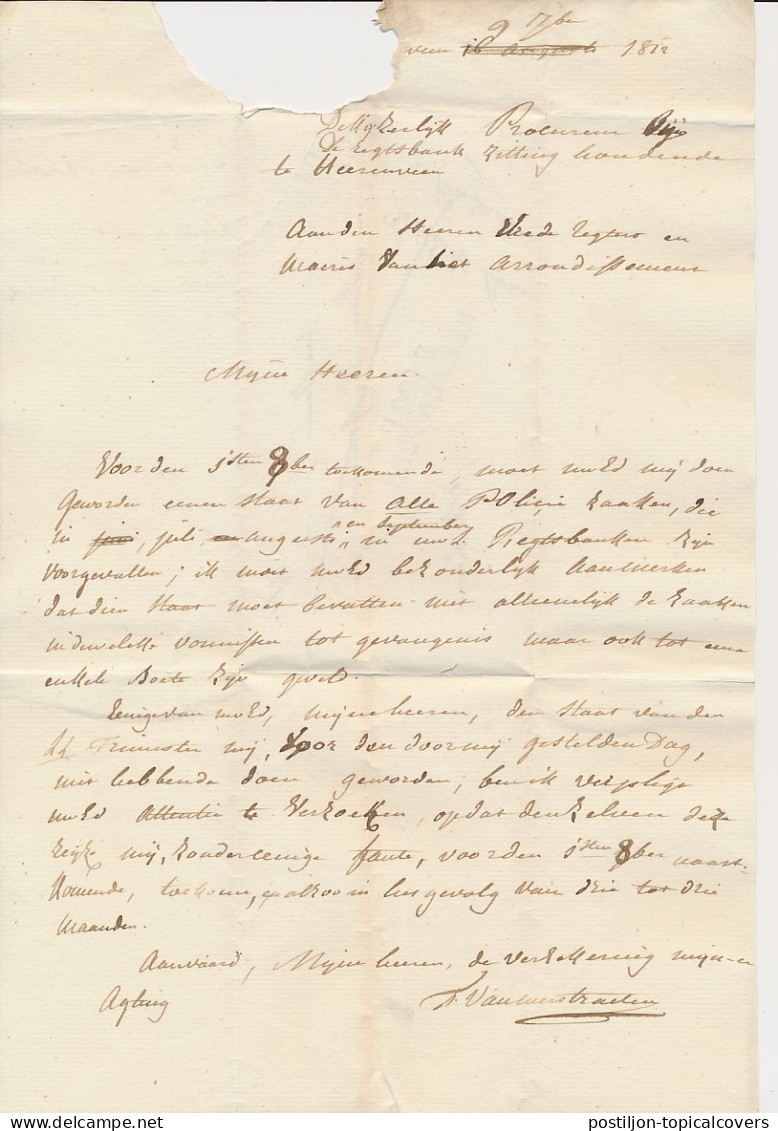 9 7ber
veen 16 Augusts 1812
De Kyzerlyk Procureur Byj
de regtsbank zitting houdende
te Heerenveen
Aanden Heeren Vrede regters en
Maires Vanhet Arrondissement
Myne Heeren
Voorden 1sten 8ber toekomende, moet uwEd mij doen
geworden eenen staat van alle Policie zaaken, die
in juni, juli, en augusti, en september, in uwe Regtsbanken zijn
voorgevallen; ik moet uwEd bezonderlijk aanmerken
dat dien staat moet bevatten niet alleenelijk de zaaken
indewelke vonnissen tot gevangenis maar ook tot eene
enkele Boete zijn geveld.
Eenige van uwEd, mijne heeren, den staat van den
Trimester mij, voor den door mij gestelden Dag,
niet hebbende doen geworden; ben ik verpligt
uwEd Attentie te verzoeken, op dat denzelven deze
mij, zonder eenige faute, voorden 1sten 8ber naast-
komende, toekome, en alzoo in het gevolg van drie tot drie
maanden.
Aanvaard, Myne heeren, de verzekering mijn-er
Agting